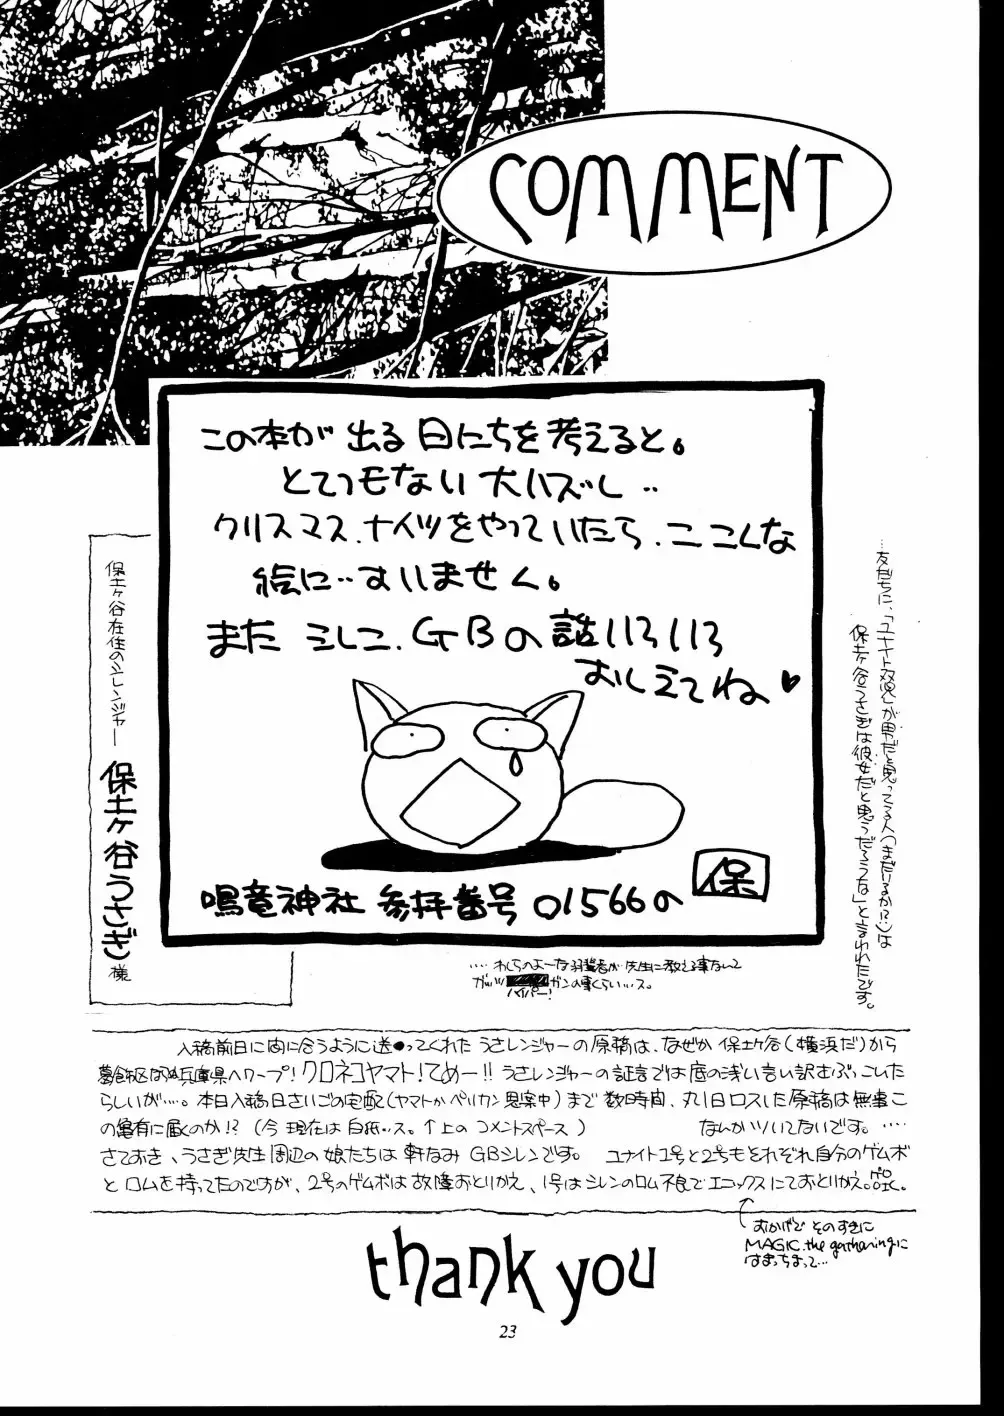 COMMENT
この本が出る日にちを考えると。
とてつもない大ハズし‥
クリスマス.ナイツをやっていたら、ここんな
絵に‥すいません。
また シレン、GBの話いろいろ
おしえてね♥
保
鳴竜神社 参拝番号 01566の
保土ヶ谷在住のシレンジャー
保土ヶ谷うさぎ様
…友だちに、「ユナイト双児が男だと思ってる人(まだいるか!?:)は
保土ヶ谷うさぎは彼女だと思うだろうな」と言われたです。
‥‥わしらのよーな が、先生に教える事なして
ガッツ ガンの事くらい‥ス。
ハイパー!
入稿前日に間に合うように送ってくれた うさレンジャーの原稿は、なぜか 保土ヶ谷(横浜だ)から
兵庫県へワープ! クロネコヤマト!てめー!! うさレンジャーの証言では底の浅い言い訳さぶっこいた
らしいが‥‥。本日入稿日さいごの宅配(ヤマトかペリカン思案中)まで 数時間、丸1日ロスした原稿は無事こ
の亀有に届くのか!? (今 現在は 白紙‥ス。↑上の コメントスペース) なんかツいてないです。‥‥
さておき、うさぎ先生周辺の娘たちは 軒なみ GBシレンです。 ユナイト1号と2号もそれぞれ自分のゲムボ
と ロムを持ってたのですが、2号のゲムボは故障おとりかえ、1号はシレンのロム不良でエニックスにておとりかえ。
おかげで そのすきに
MAGIC the gatheringに
はまっちまって…
thank you
23